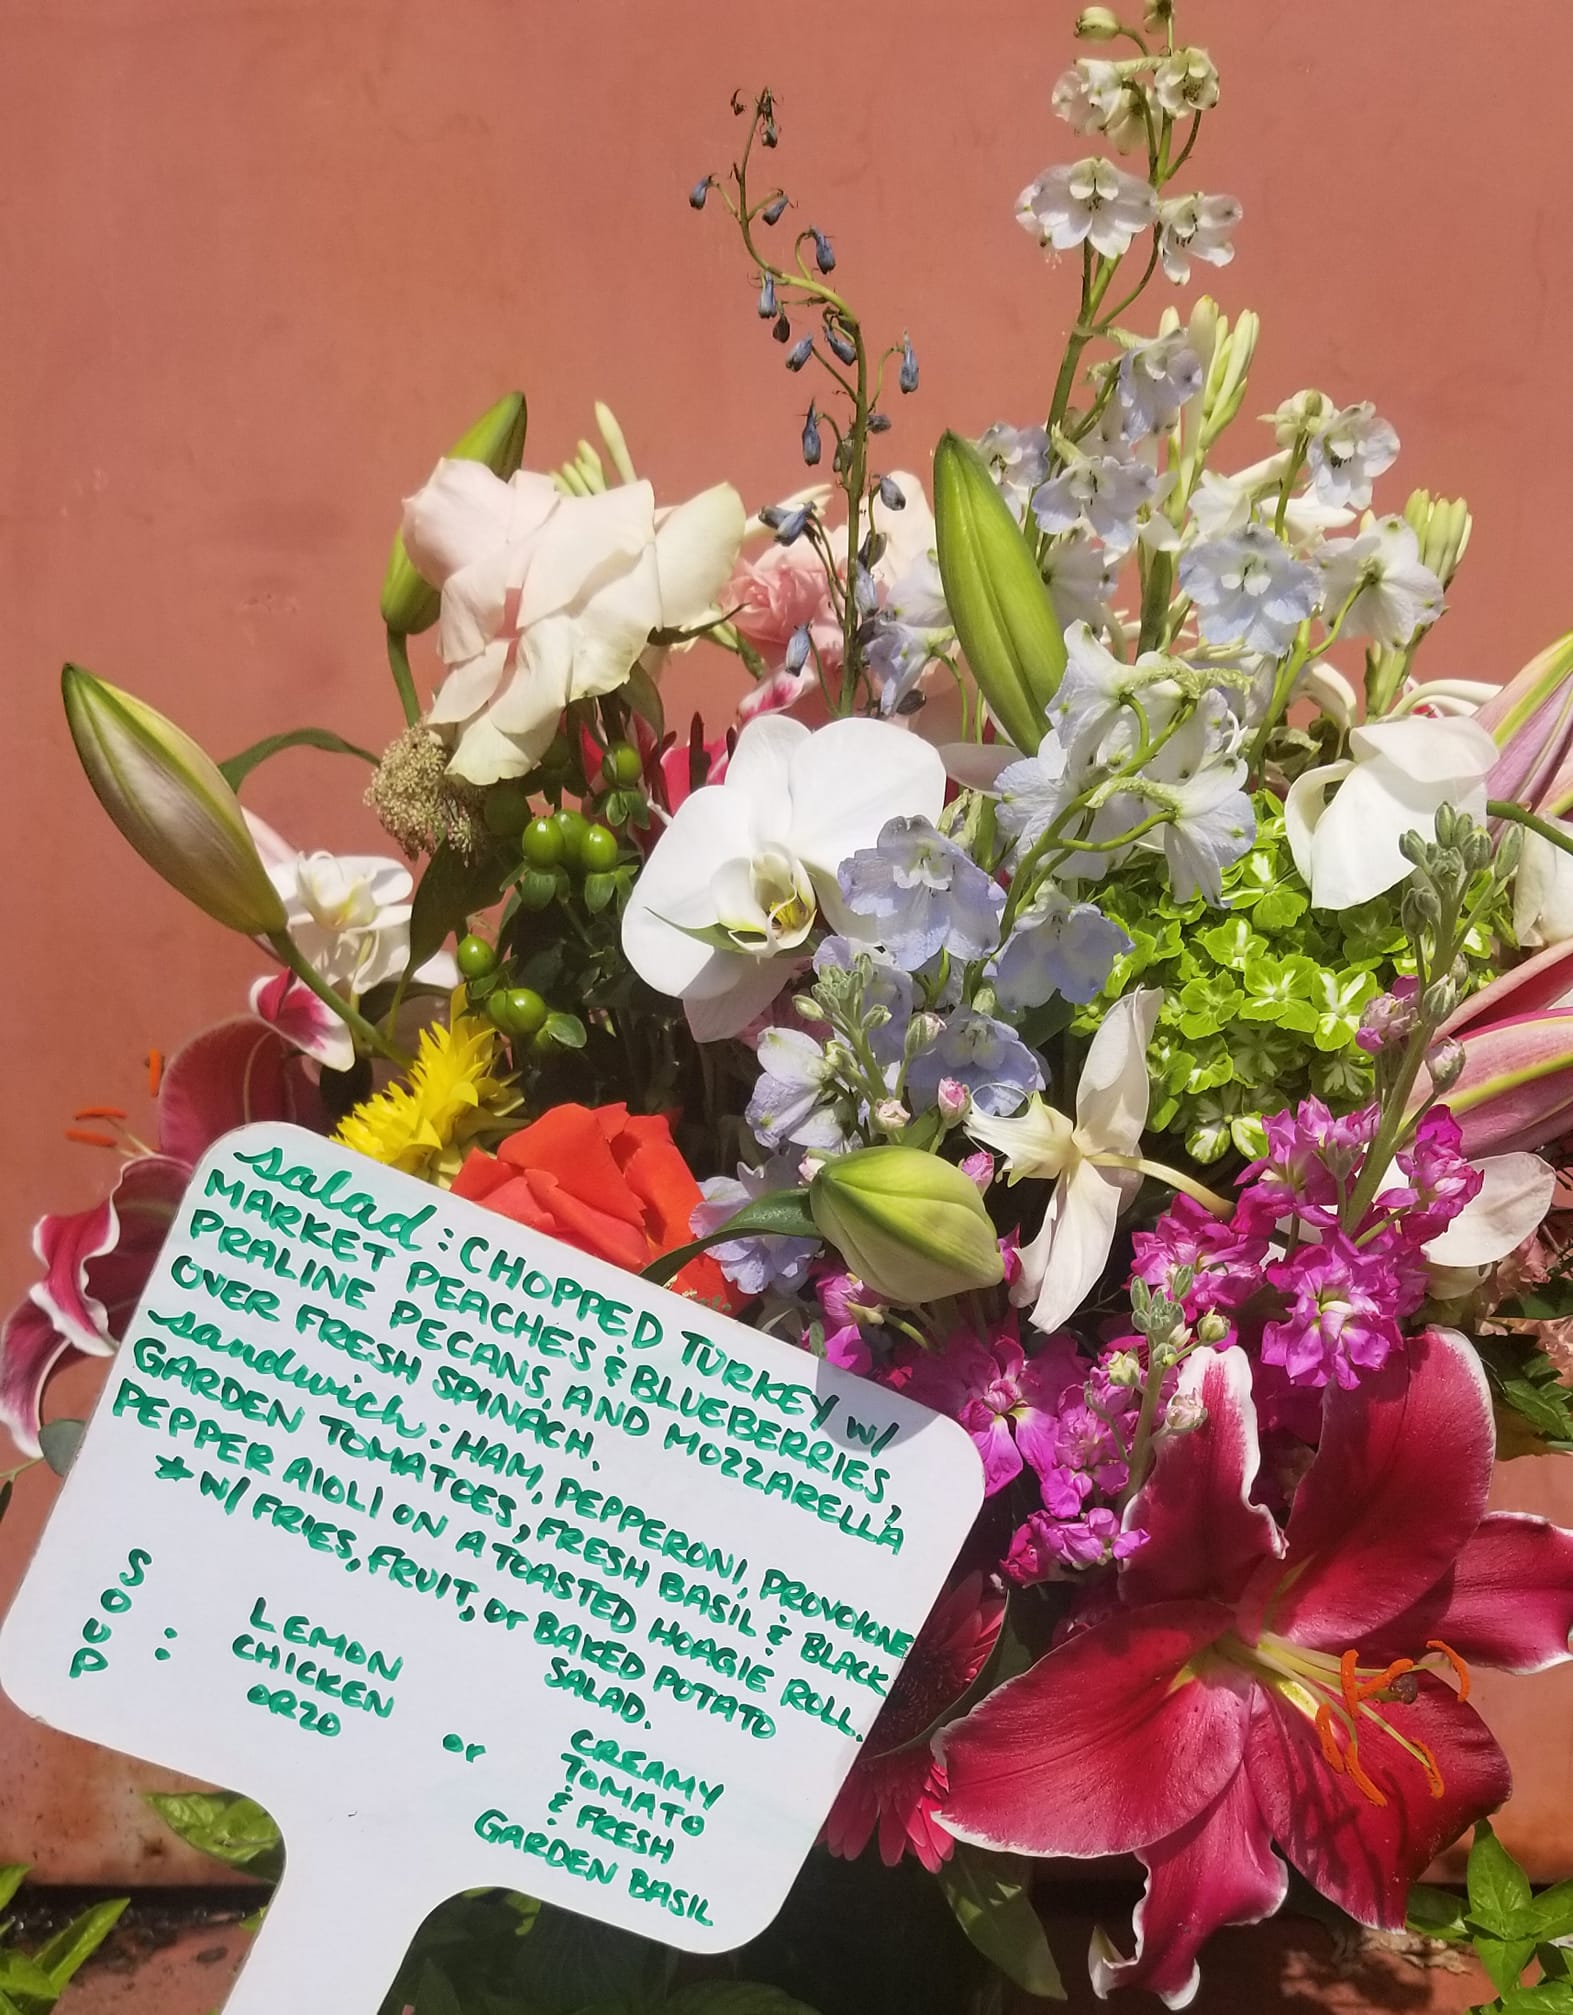 salad: CHOPPED TURKEY w/
MARKET PEACHES & BLUEBERRIES,
PRALINE PECANS, AND MOZZARELLA
OVER FRESH SPINACH.
sandwich: HAM, PEPPERONI, PROVOLONE
GARDEN TOMATOES, FRESH BASIL & BLACK
PEPPER AIOLI ON A TOASTED HOAGIE ROLL.
*W/ FRIES, FRUIT, or BAKED POTATO
SALAD.
SOUP:
LEMON
CHICKEN
ORZO
or
CREAMY
TOMATO
& FRESH
GARDEN BASIL